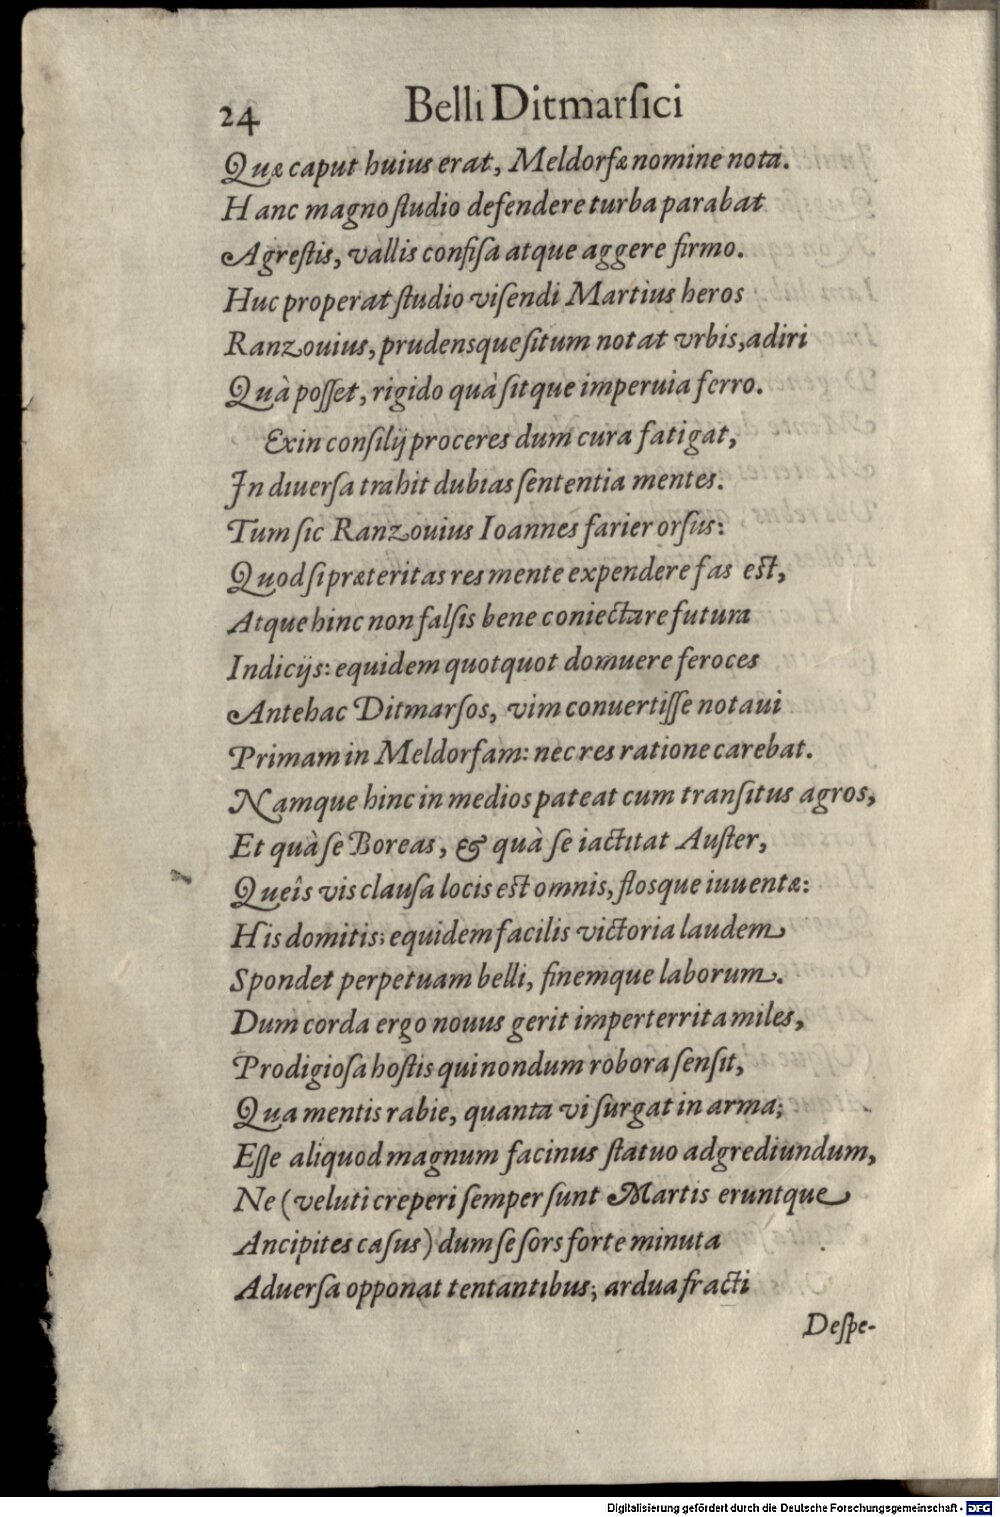 24 Belli Ditmarſici
Quæ caput huius erat, Meldorfæ nomine nota.
Hanc magno ſtudio defendere turba parabat
Agreſtis, vallis confiſa atque aggere firmo.
Huc properat ſtudio viſendi Martius heros
Ranzouius, prudensque ſitum notat vrbis, adiri
Quà poſſet, rigido quà ſitque imperuia ferro.
Exin conſilij proceres dum cura fatigat,
In diuerſa trahit dubias ſententia mentes.
Tum ſic Ranzouius Ioannes farier orſus:
Quod ſi præteritas res mente expendere fas eſt,
Atque hinc non falſis bene coniectare futura
Indicijs: equidem quotquot domuere feroces
Antehac Ditmarſos, vim conuertiſſe notaui
Primam in Meldorfam: nec res ratione carebat.
Namque hinc in medios pateat cum tranſitus agros,
Et quà ſe Boreas, & quà ſe iactitat Auſter,
Queîs vis clauſa locis eſt omnis, flosque iuuentæ:
His domitis; equidem facilis victoria laudem
Spondet perpetuam belli, finemque laborum.
Dum corda ergo nouus gerit imperterrita miles,
Prodigioſa hoſtis qui nondum robora ſenſit,
Qua mentis rabie, quanta vi ſurgat in arma;
Eſſe aliquod magnum facinus ſtatuo adgrediundum,
Ne (veluti creperi ſemper ſunt Martis eruntque
Ancipites caſus) dum ſe ſors forte minuta
Aduerſa opponat tentantibus; ardua fracti
Deſpe-
Digitalisierung gefördert durch die Deutsche Forschungsgemeinschaft - DFG